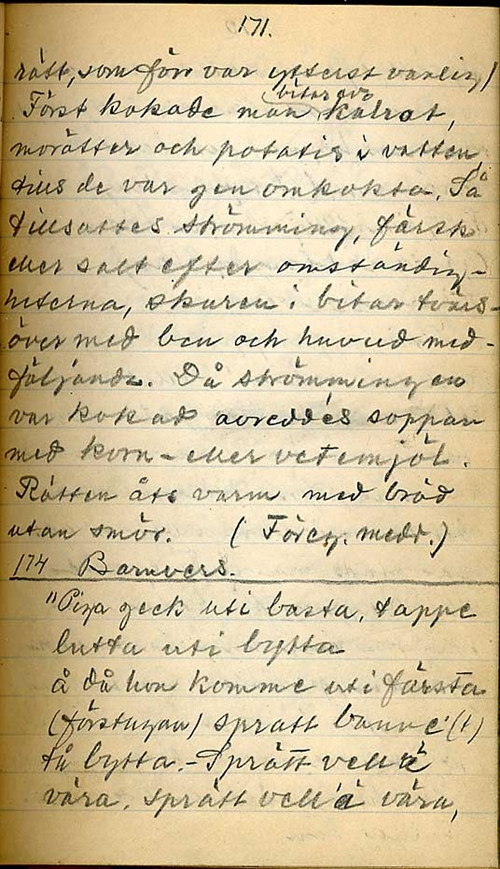 171.
rätt, som förr var ytterst vanlig)
bitar av
Först kokade man kålrot,
morötter och potatis i vatten,
tills de var genomkokta. Så
tillsattes strömming, färsk
eller salt efter omständig-
heterna, skuren i bitar tvärs-
över med ben och huvud med-
följande. Då strömmingen
var kokad avreddes soppan
med korn- eller vetemjöl.
Rätten åts varm med bröd
utan smör. (Föreg. medd.)
174 Barnvers.
"Piga geck uti basta, tappe
lutta uti bytta
å då hon komme uti färsta
(förstugan) spratt bonne (t)
tu bytta. - Sprätt vell'ä
våra, sprätt vell'ä våra,